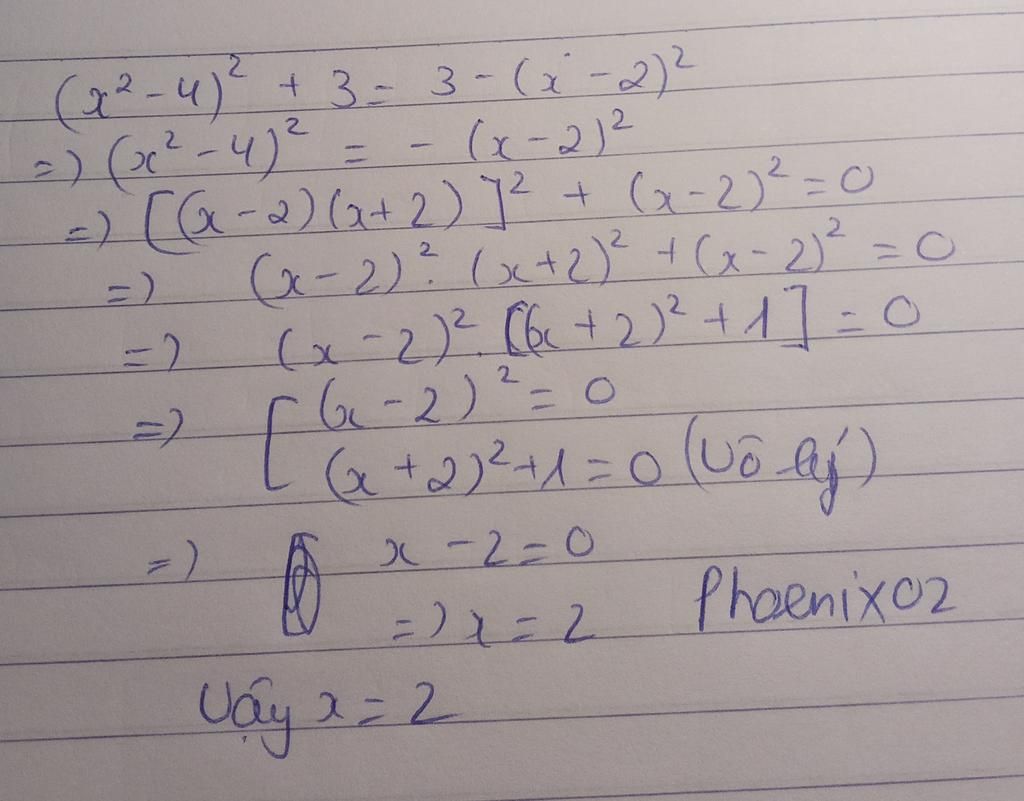 (x² - 4)² + 3 = 3 - (x - 2)²
=> (x² - 4)² = - (x - 2)²
=> [(x - 2)(x + 2)]² + (x - 2)² = 0
=> (x - 2)². (x + 2)² + (x - 2)² = 0
=> (x - 2)². [(x + 2)² + 1] = 0
=> [ (x - 2)² = 0
(x + 2)² + 1 = 0 (Vô lý)
=> x - 2 = 0
=> x = 2 Phoenix02
Vậy x = 2